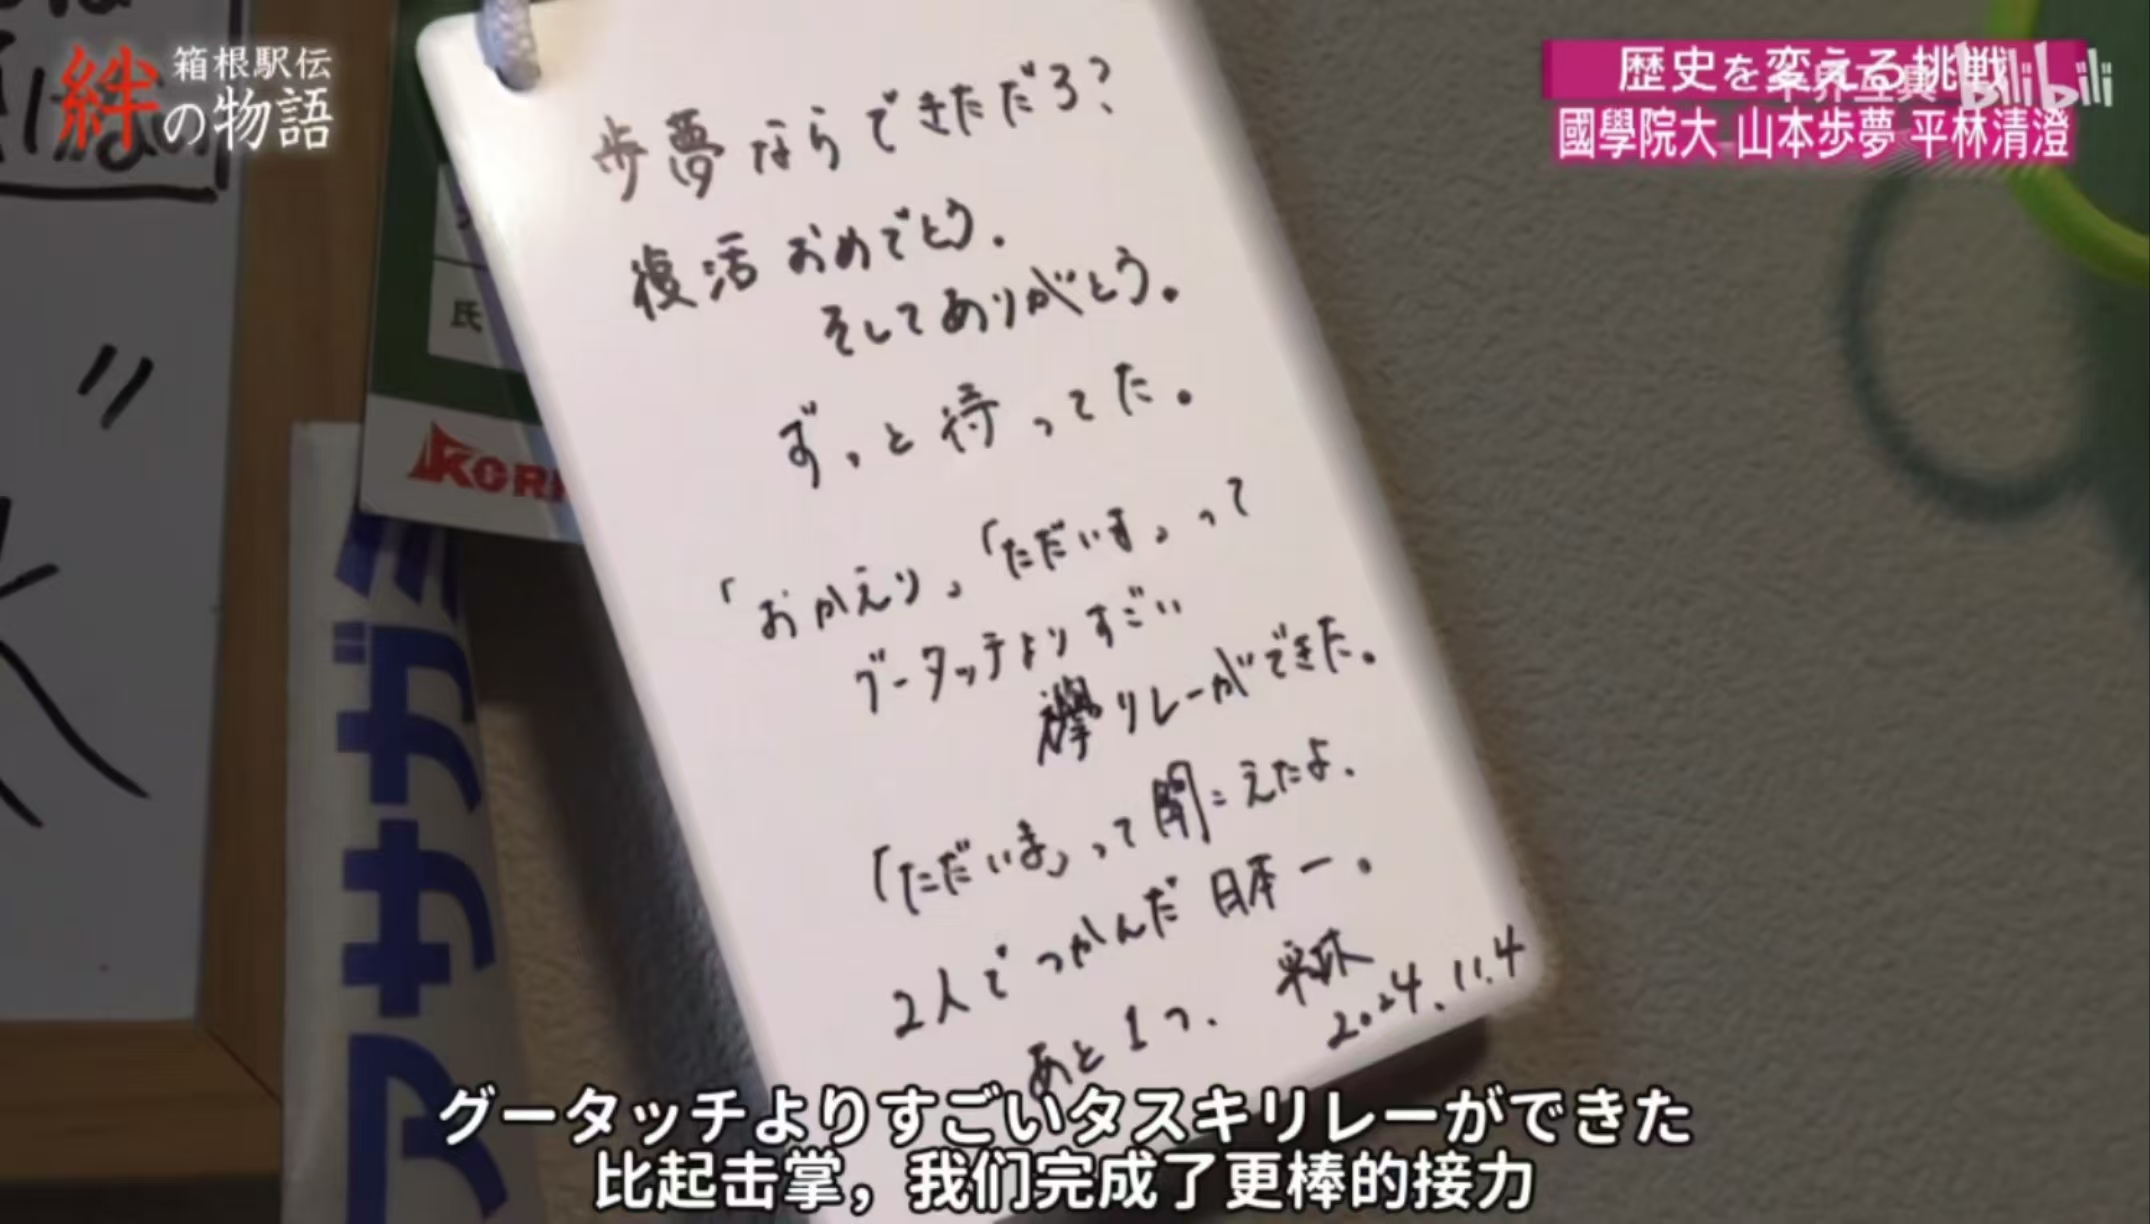 絆の物語
箱根駅伝
歴史を変える挑戦
bilibili
國學院大 山本歩夢 平林清澄
歩夢ならできただろ?
復活おめでとう.
そしてありがとう。
ずっと待ってた。
「おかえり」「ただいま」って
グータッチよりすごい
襷リレーができた。
「ただいま」って聞こえたよ.
2人でつかんだ日本一。
あと1つ.
平林
2024.11.4
氏
KORI
アサガミ
グータッチよりすごいタスキリレーができた
比起击掌，我们完成了更棒的接力